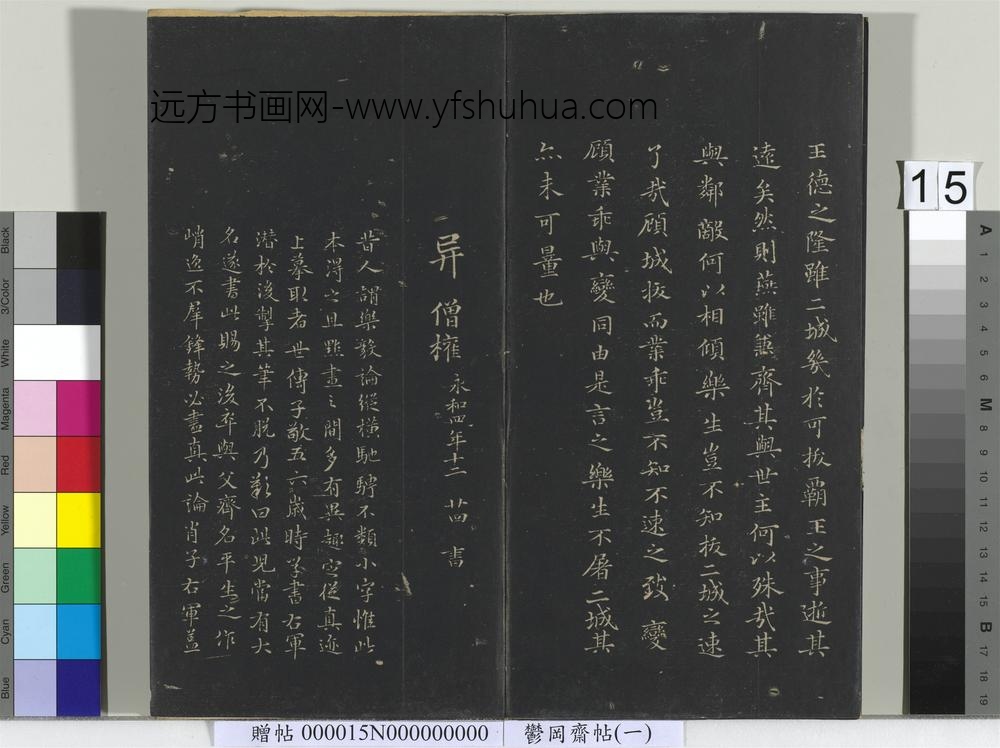 远方书画网-www.yfshuhua.com
王德之隆雖二城幾於可拔霸王之事逝其
遠矣然則燕雖兼齊其與世主何以殊哉其
與鄰敵何以相傾樂生豈不知拔二城之速
了哉顧城拔而業乖豈不知不速之致變
顧業乖與變同由是言之樂生不屠二城其
亦未可量也
异 僧權 永和四年十二 書
昔人謂樂毅論縱橫馳騁不類小字惟此
本得之且點畫之間多有異趣定從真迹
上摹取者世傳子敬五六歲時學書右軍
潛於後掣其筆不脫乃歎曰此兒當有大
名遂書此賜之後卒與父齊名平生之作
峭逸不犀鋒勢必盡真此論肖子右軍蓋
15
贈帖 000015N000000000 鬱岡齋帖(一)
Black
3/Color
White
Magenta
Red
Yellow
Green
Cyan
Blue
A
1
2
3
4
5
6
M
8
9
10
11
12
13
14
15
B
17
18
19